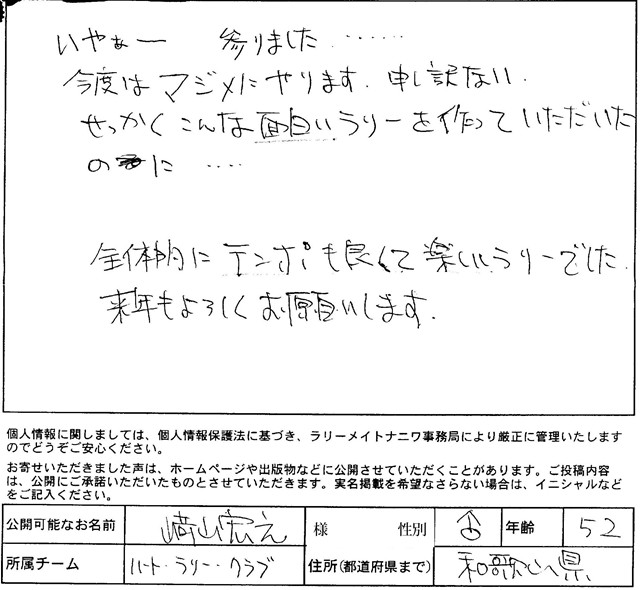 いやぁー 参りました……
今度はマジメにやります. 申し訳ない.
せっかくこんな面白いラリーを作っていただいた
のに ‥‥
全体的にテンポも良くて楽しいラリーでした.
来年もよろしくお願いします.
個人情報に関しましては、個人情報保護法に基づき、ラリーメイトナニワ事務局により厳正に管理いたします
のでどうぞご安心ください。
お寄せいただきました声は、ホームページや出版物などに公開させていただくことがあります。ご投稿内容
は、公開にご承諾いただいたものとさせていただきます。実名掲載を希望なさらない場合は、イニシャルなど
をご記入ください。
公開可能なお名前 山宏之 様 性別 年齢 52
所属チーム ハート・ラリー・クラブ 住所(都道府県まで) 和歌山県